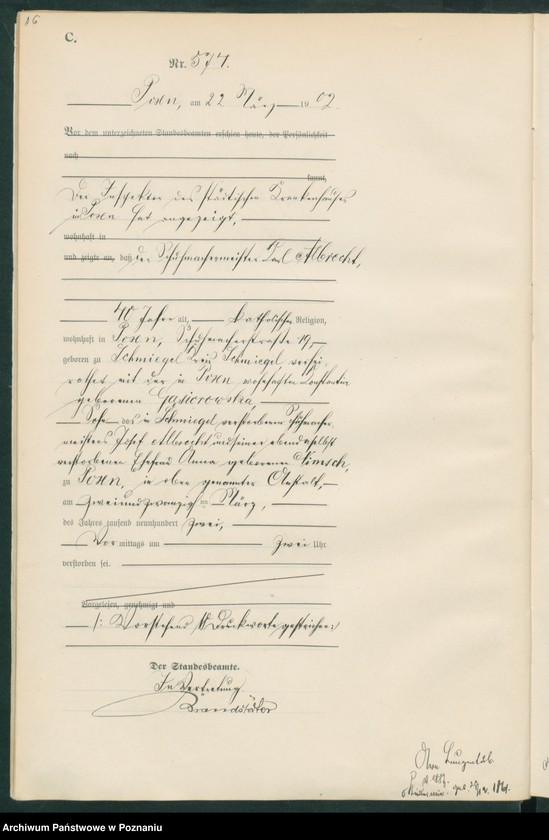 16
C.
Nr. 574.
Posen, am 22 März 1902.
Vor dem unterzeichneten Standesbeamten erschien heute, der Persönlichkeit
nach
kannt,
Der Inspektor des städtischen Krankenhauses
in Posen hat angezeigt,
wohnhaft in
und zeigte an, daß der Schuhmachermeister Karl Albrecht,
40 Jahre alt, katholischer Religion,
wohnhaft in Posen, Schuhmacherstraße 19,
geboren zu Schmiegel Kreis Schmiegel, verhei-
rathet mit der in Posen wohnhaften Konstantia
geborenen Gąsiorowska,
Sohn des in Schmiegel verstorbenen Schuhmacher-
meisters Josef Albrecht und seiner ebendaselbst
verstorbenen Ehefrau Anna geborenen Nimsch,
zu Posen, in oben genannter Anstalt,
am zweiundzwanzigsten März,
des Jahres tausend neunhundert zwei,
Vor mittags um zwei Uhr
verstorben sei.
Vorgelesen, genehmigt und
/: Vorstehend Druckworte gestrichen :/
Der Standesbeamte.
In Vertretung
Brandstäter
Archiwum Państwowe w Poznaniu